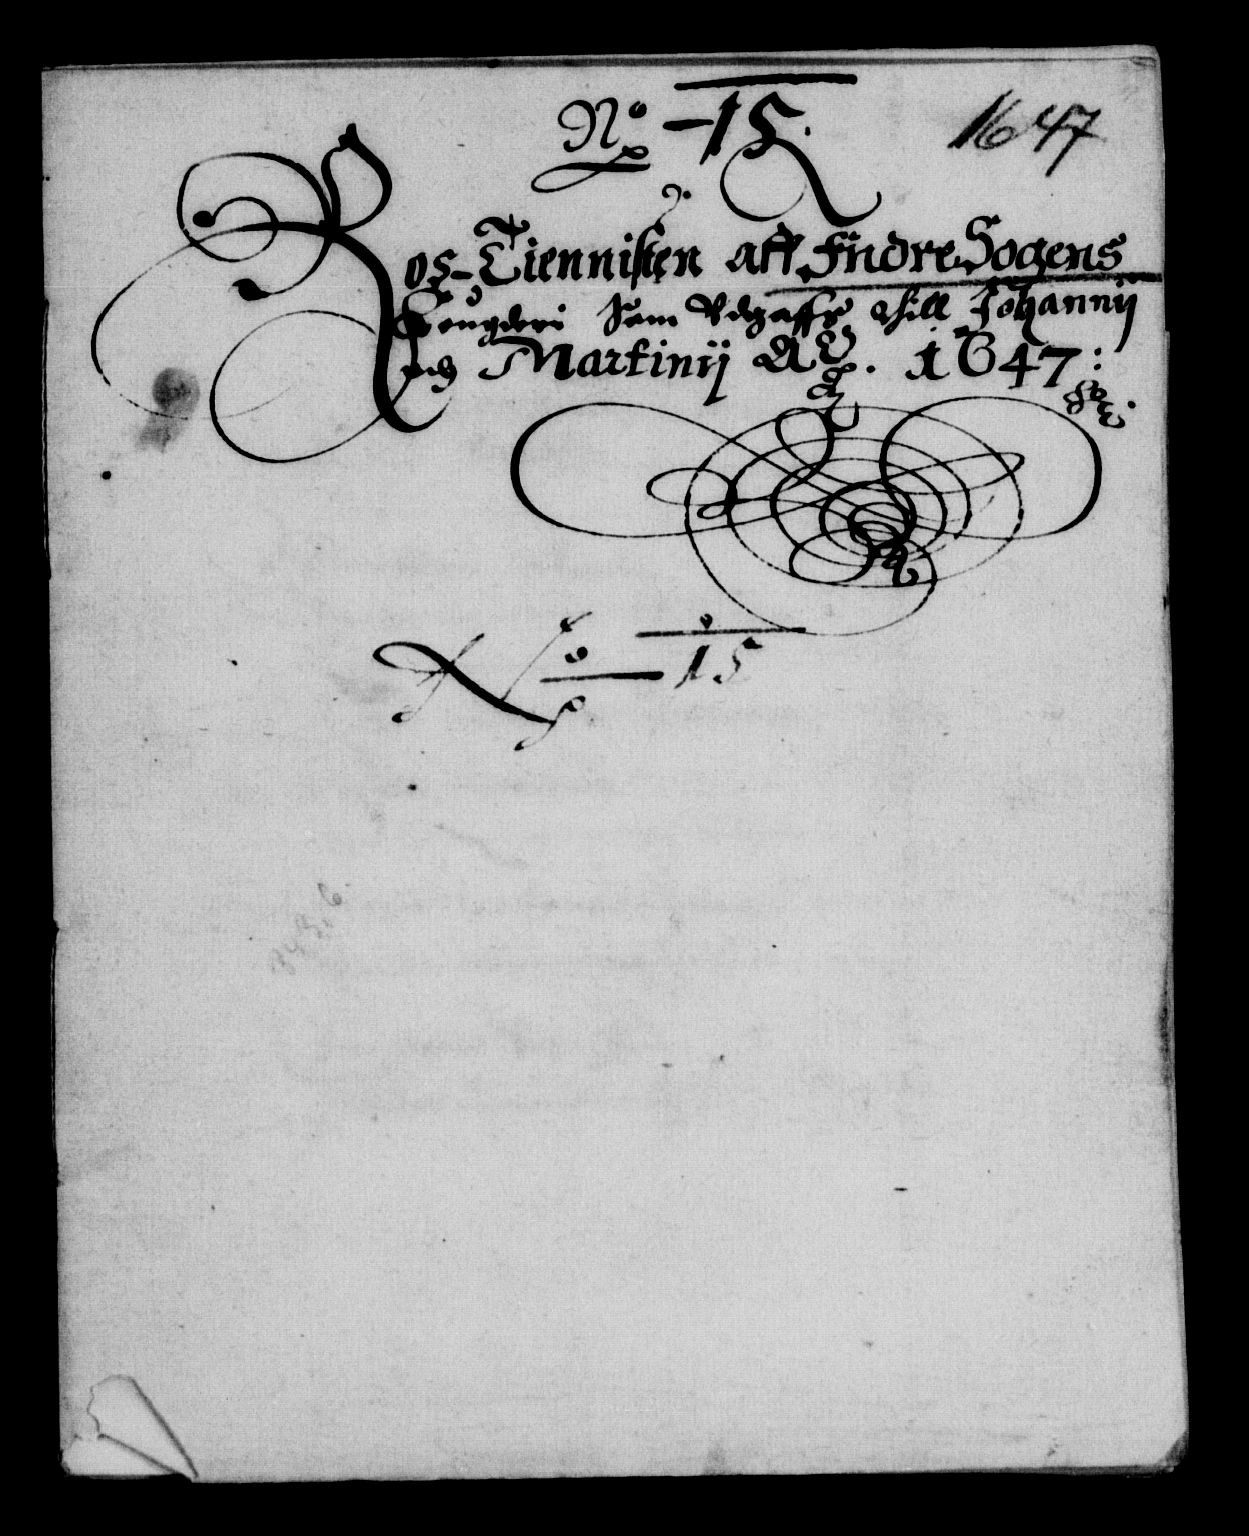 No 15.
1647
Ros-Tiennisten aff Indre Sogens
Som Udgaffs till Johannij
och Martinij A̅o̅. 1647:
No 15